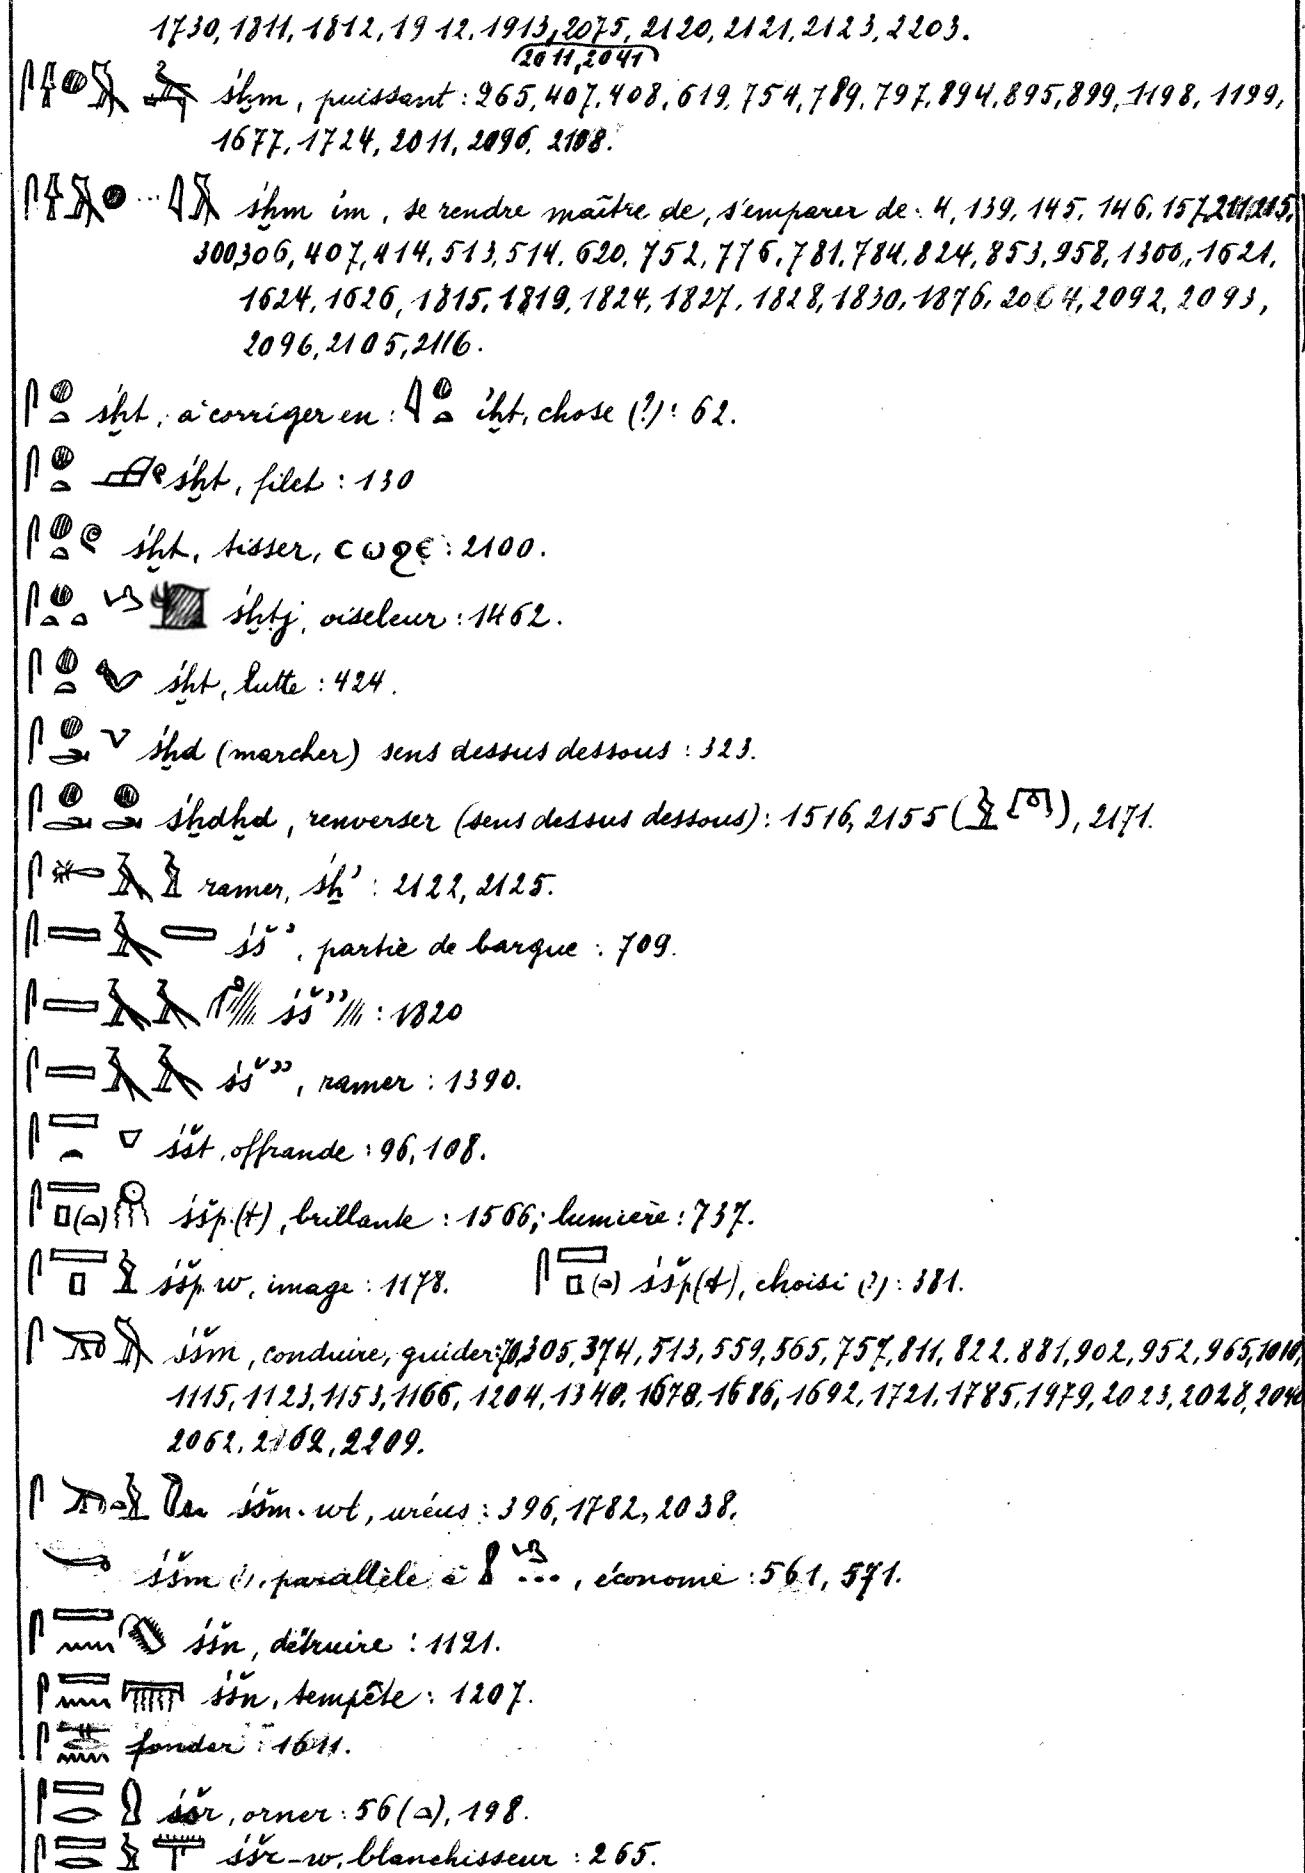 1730, 1811, 1812, 1912, 1913, 2075, 2120, 2121, 2123, 2203.
(2011, 2041)
śḫm, puissant : 265, 407, 408, 619, 754, 789, 797, 894, 895, 899, 1198, 1199,
1677, 1724, 2011, 2096, 2108.
śḫm im, se rendre maître de, s'emparer de : 4, 139, 145, 146, 157, 211, 215,
300, 306, 407, 414, 513, 514, 620, 752, 776, 781, 784, 824, 853, 958, 1300, 1621,
1624, 1626, 1815, 1819, 1824, 1827, 1828, 1830, 1876, 2064, 2092, 2093,
2096, 2105, 2116.
śḫt, à corriger en : iḫt, chose (?) : 62.
śḫt, filet : 130
śḫt, tisser, ⲥⲱϩⲉ : 2100.
śḫtj, oiseleur : 1462.
śḫt, lutte : 424.
śḫd (marcher) sens dessus dessous : 323.
śḫdḫd, renverser (sens dessus dessous) : 1516, 2155 ( ), 2171.
ramer, śẖꜣ : 2122, 2125.
śšꜣ, partie de barque : 709.
śšꜣꜣ : 1820
śšꜣꜣ, ramer : 1390.
śšt, offrande : 96, 108.
śšp.(t), brillante : 1566; lumière : 737.
śšp.w, image : 1178. śšp(t), choisi (?) : 381.
śšm, conduire, guider : 70, 305, 374, 513, 559, 565, 757, 811, 822, 881, 902, 952, 965, 1010,
1115, 1123, 1153, 1166, 1204, 1340, 1678, 1686, 1692, 1721, 1785, 1979, 2023, 2028,
2062, 2162, 2209.
śšm.wt, uréus : 396, 1782, 2038.
śšm (?), parallèle à ..., économe : 561, 571.
śšn, détruire : 1121.
śšn, tempête : 1207.
fonder : 1611.
śšr, orner : 56 (⌓), 198.
śšr-w, blanchisseur : 265.